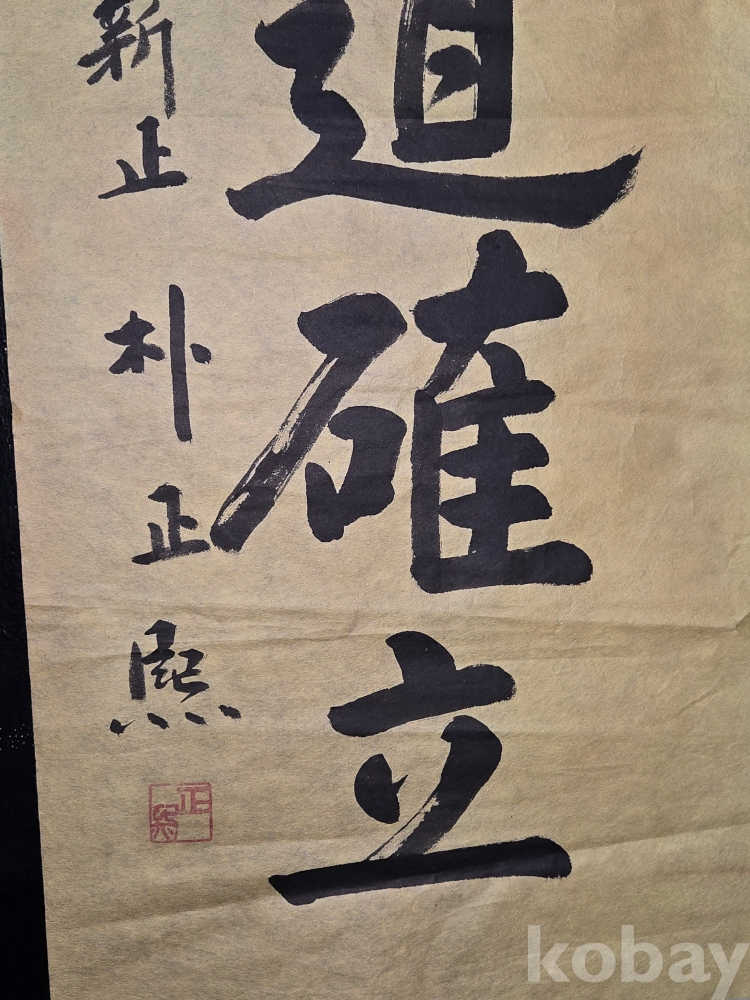 道確立
新正 朴正熙
正熙
kobay